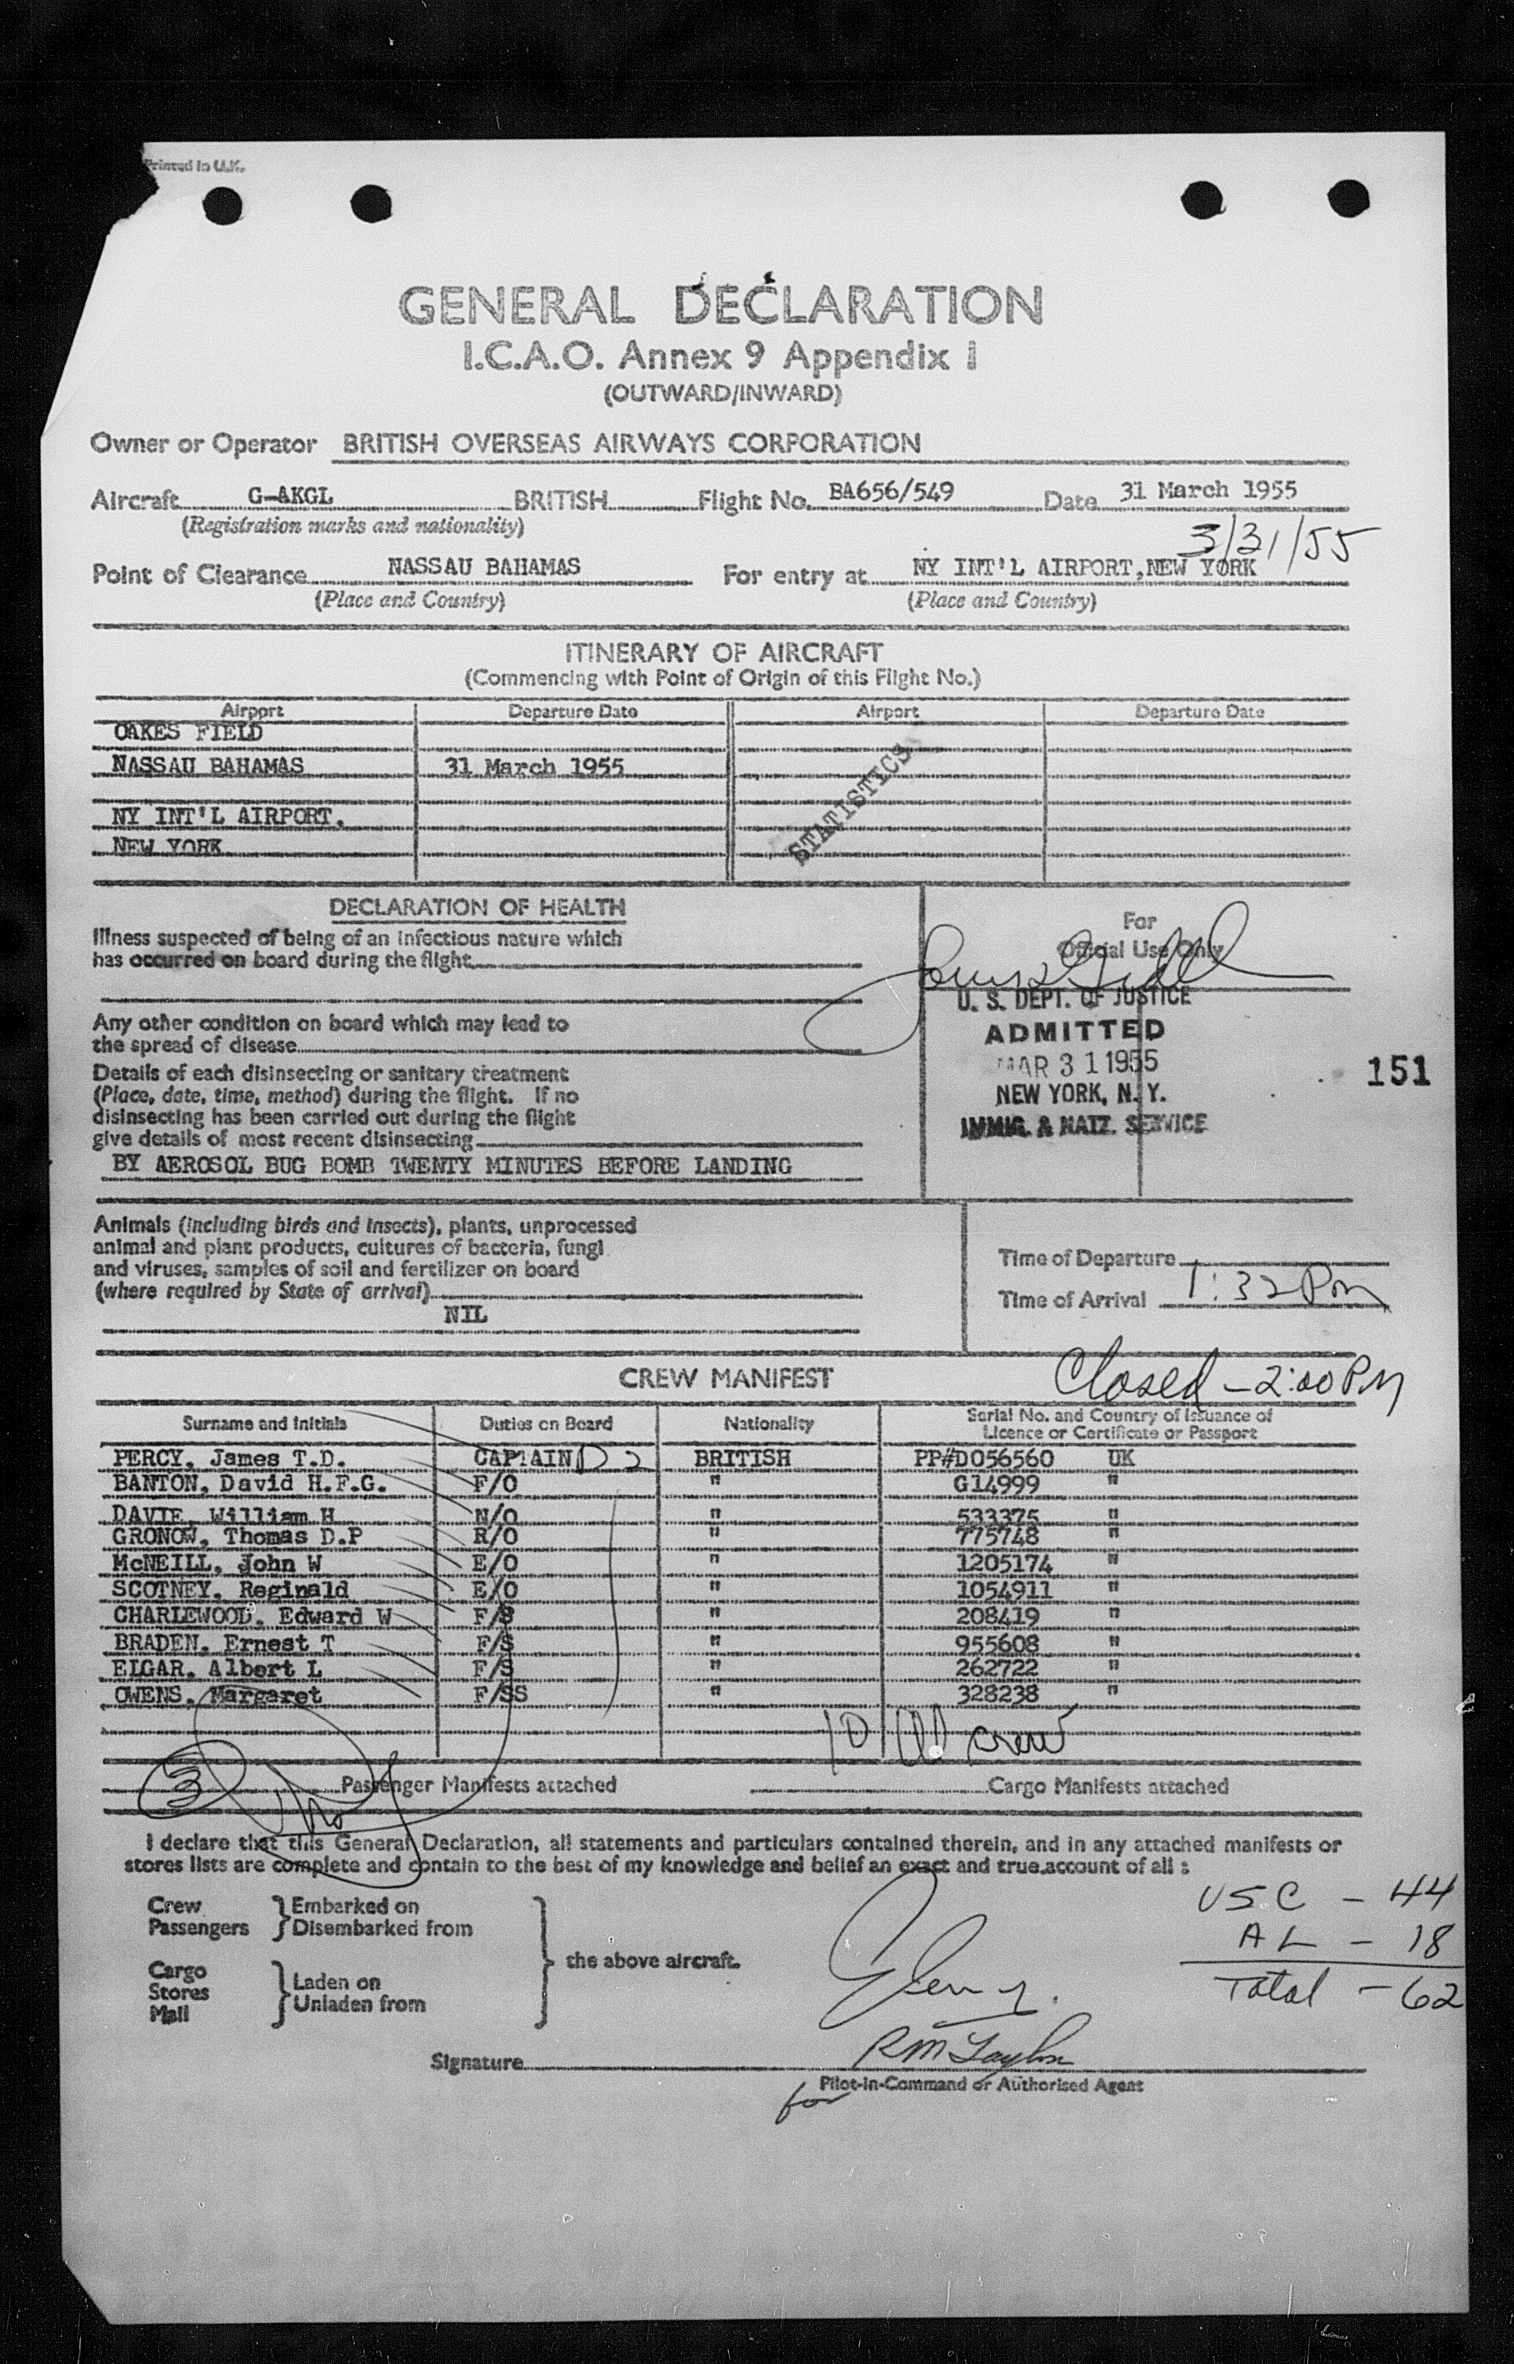 Printed in U.K.
GENERAL DECLARATION
I.C.A.O. Annex 9 Appendix 1
(OUTWARD/INWARD)
Owner or Operator BRITISH OVERSEAS AIRWAYS CORPORATION
Aircraft G-AKGL BRITISH Flight No. BA656/549 Date 31 March 1955
(Registration marks and nationality)
3/31/55
Point of Clearance NASSAU BAHAMAS For entry at NY INT'L AIRPORT, NEW YORK
(Place and Country) (Place and Country)
ITINERARY OF AIRCRAFT
(Commencing with Point of Origin of this Flight No.)
Airport Departure Date Airport Departure Date
OAKES FIELD
NASSAU BAHAMAS 31 March 1955
NY INT'L AIRPORT,
NEW YORK
STATISTICS
DECLARATION OF HEALTH
Illness suspected of being of an infectious nature which
has occurred on board during the flight
For
Official Use Only
Any other condition on board which may lead to
the spread of disease
U. S. DEPT. OF JUSTICE
ADMITTED
MAR 31 1955
NEW YORK, N. Y.
IMMIG. & NATZ. SERVICE
151
Details of each disinsecting or sanitary treatment
(Place, date, time, method) during the flight. If no
disinsecting has been carried out during the flight
give details of most recent disinsecting
BY AEROSOL BUG BOMB TWENTY MINUTES BEFORE LANDING
Animals (including birds and insects), plants, unprocessed
animal and plant products, cultures of bacteria, fungi
and viruses, samples of soil and fertilizer on board
(where required by State of arrival)
NIL
Time of Departure
Time of Arrival 1:32 Pm
CREW MANIFEST
Closed - 2:00 PM
Surname and Initials Duties on Board Nationality Serial No. and Country of Issuance of
Licence or Certificate or Passport
PERCY, James T.D. CAPTAIN D 2 BRITISH PP#D056560 UK
BANTON, David H.F.G. F/O " G14999 "
DAVIE, William H N/O " 533375 "
GRONOW, Thomas D.P R/O " 775748 "
McNEILL, John W E/O " 1205174 "
SCOTNEY, Reginald E/O " 1054911 "
CHARLEWOOD, Edward W F/S " 208419 "
BRADEN, Ernest T F/S " 955608 "
ELGAR, Albert L F/S " 262722 "
OWENS, Margaret F/SS " 328238 "
10 crew
3 Passenger Manifests attached Cargo Manifests attached
I declare that this General Declaration, all statements and particulars contained therein, and in any attached manifests or
stores lists are complete and contain to the best of my knowledge and belief an exact and true account of all :
Crew Embarked on
Passengers Disembarked from
the above aircraft.
Cargo
Stores Laden on
Mail Unladen from
USC - 44
AL - 18
Total - 62
RM Taylor
Signature
for Pilot-in-Command or Authorised Agent